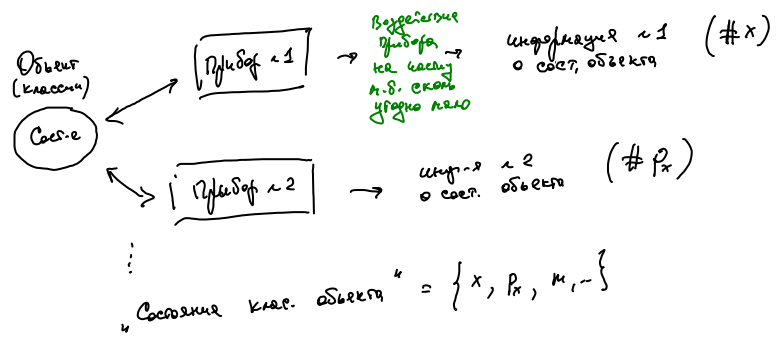 Объект
(классич)
Сост-е
Прибор №1
Воздействие
прибора
на частицу
м.б. сколь
угодно мало
информация №1
о сост, объекта
(# x)
Прибор №2
инф-я №2
о сост. объекта
(# Pₓ)
"Состояние клас. объекта" = {x, pₓ, m, ..}